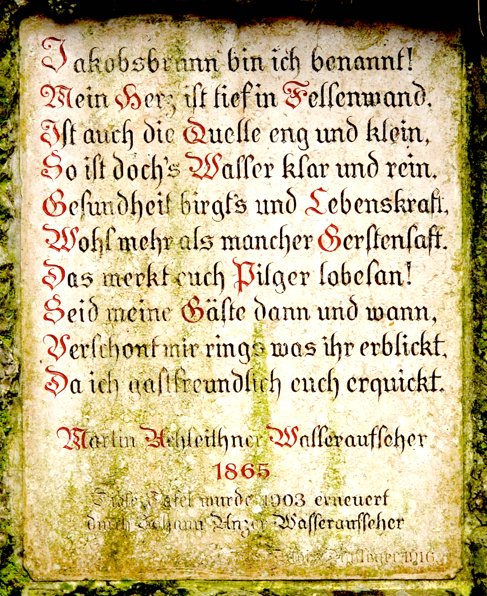 Jakobsbrunn bin ich benannt!
Mein Herz ist tief in Felsenwand.
Ist auch die Quelle eng und klein,
So ist doch's Wasser klar und rein.
Gesundheit birgt's und Lebenskraft.
Wohl mehr als mancher Gerstensaft.
Das merkt euch Pilger lobesan!
Seid meine Gäste dann und wann,
Verschont mir rings was ihr erblickt.
Da ich gastfreundlich euch erquickt.
Martin Achleithner Wasseraufseher
1865
Diese Tafel wurde 1903 erneuert
durch Johann Anzer Wasseraufseher
1916